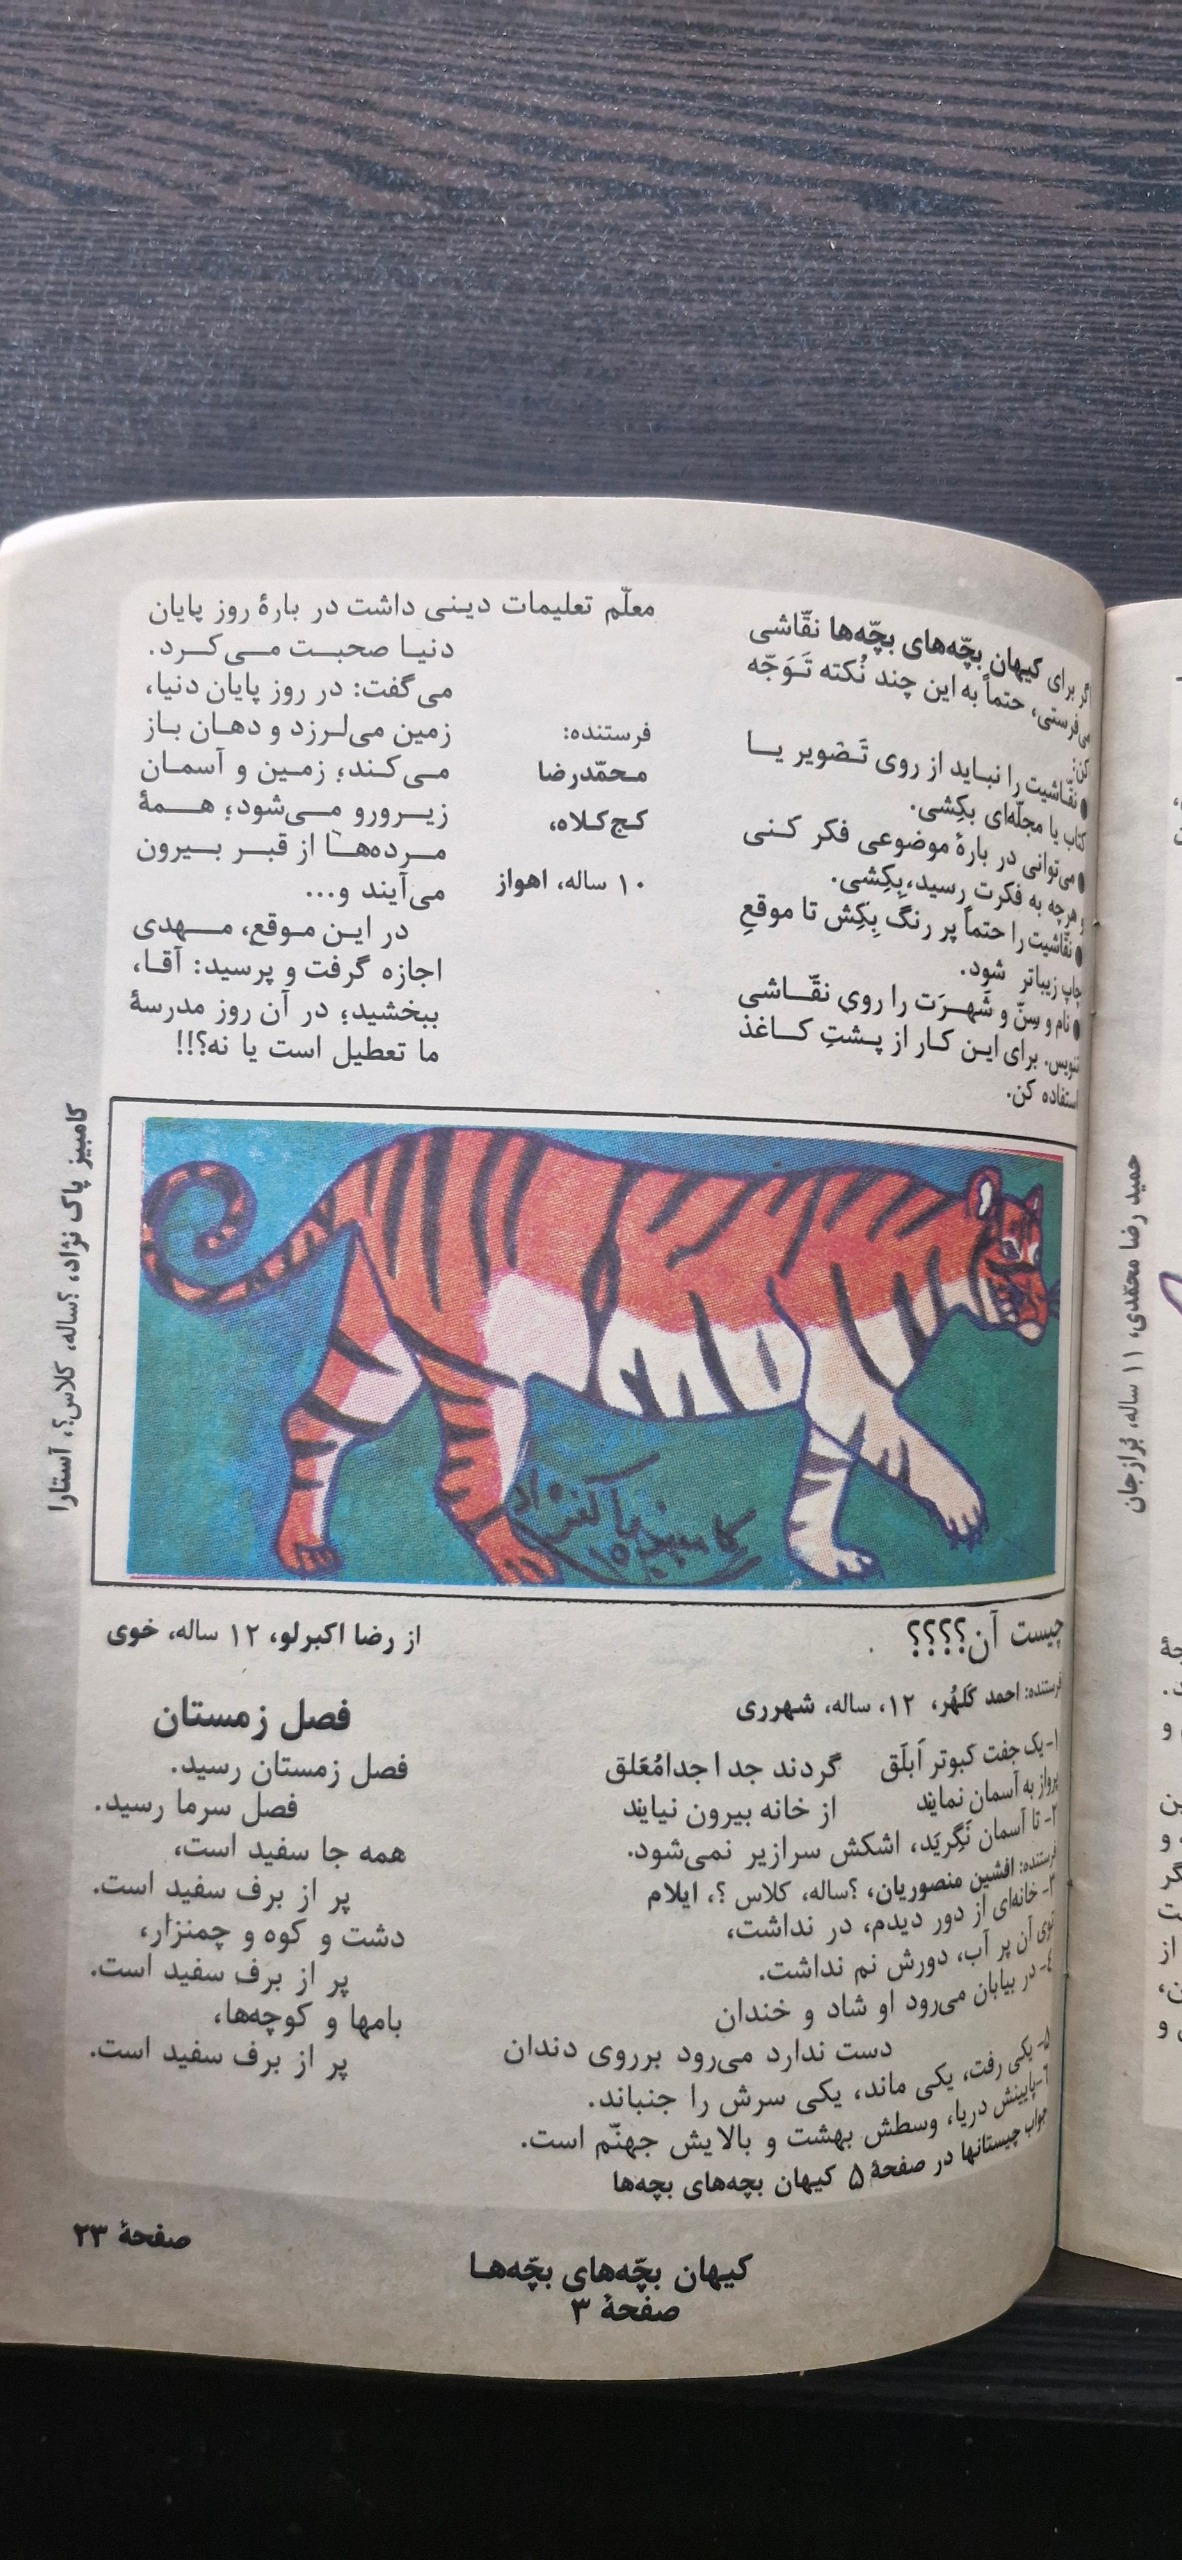 اگر برای کیهان بچّه‌های بچّه‌ها نقّاشی
می‌فرستی، حتماً به این چند نُکته تَوَجّه
کن:
● نقّاشیت را نباید از روی تَصْویر یا
کتاب یا مجلّه‌ای بکِشی.
● می‌توانی در بارهٔ موضوعی فکر کنی
و هرچه به فکرت رسید، بِکِشی.
● نقّاشیت را حتماً پر رنگ بِکِش تا موقعِ
چاپ زیباتر شود.
● نام و سِنّ و شَهرَت را روی نقّاشی
ننویس. برای این کار از پشتِ کاغذ
استفاده کن.
معلّم تعلیمات دینی داشت در بارهٔ روز پایان
دنیا صحبت می‌کرد.
می‌گفت: در روز پایان دنیا،
زمین می‌لرزد و دهان باز
می‌کند؛ زمین و آسمان
زیرورو می‌شود؛ همهٔ
مرده‌ها از قبر بیرون
می‌آیند و...
در این موقع، مهدی
اجازه گرفت و پرسید: آقا،
ببخشید؛ در آن روز مدرسهٔ
ما تعطیل است یا نه؟!!
فرستنده:
محمّدرضا
کج‌کلاه،
۱۰ ساله، اهواز
حمید رضا محمّدی، ۱۱ ساله، بُرازجان
کامبیز پاک نژاد، ؟ساله، کلاس؟، آستارا
کامبیز پاکنژاد
۱۵
چیست آن؟؟؟؟
فرستنده: احمد کَلهُر، ۱۲، ساله، شهرری
۱- یک جفت کبوتر اَبلَق گردند جد ا جدامُعَلق
پرواز به آسمان نمایند از خانه بیرون نیایند
۲- تا آسمان نَگِریَد، اشکش سرازیر نمی‌شود.
فرستنده: افشین منصوریان، ؟ساله، کلاس ؟، ایلام
۳- خانه‌ای از دور دیدم، در نداشت،
توی آن پر آب، دورش نم نداشت.
۴- در بیابان می‌رود او شاد و خندان
دست ندارد می‌رود برروی دندان
۵- یکی رفت، یکی ماند، یکی سرش را جنباند.
۶- پایینش دریا، وسطش بهشت و بالایش جهنّم است.
جواب چیستانها در صفحهٔ ۵ کیهان بچه‌های بچه‌ها
از رضا اکبرلو، ۱۲ ساله، خوی
فصل زمستان
فصل زمستان رسید.
فصل سرما رسید.
همه جا سفید است،
پر از برف سفید است.
دشت و کوه و چمنزار،
پر از برف سفید است.
بامها و کوچه‌ها،
پر از برف سفید است.
صفحهٔ ۲۳
کیهان بچّه‌های بچّه‌ها
صفحهٔ ۳